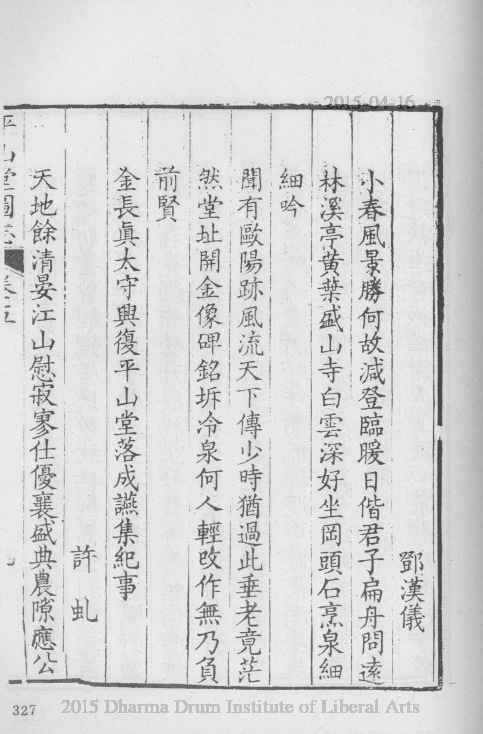 2015-04-16
鄧漢儀
小春風景勝何故減登臨暖日偕君子扁舟問遠
林溪亭黄葉盛山寺白雲深好坐岡頭石烹泉細
細吟
聞有歐陽跡風流天下傳少時猶過此垂老竟茫
然堂址開金像碑銘坼冷泉何人輕改作無乃負
前賢
金長眞太守興復平山堂落成讌集紀事
許虬
天地餘清晏江山慰寂寥仕優襄盛典農隙應公
平山堂圖志 卷五
九
327
2015 Dharma Drum Institute of Liberal Arts